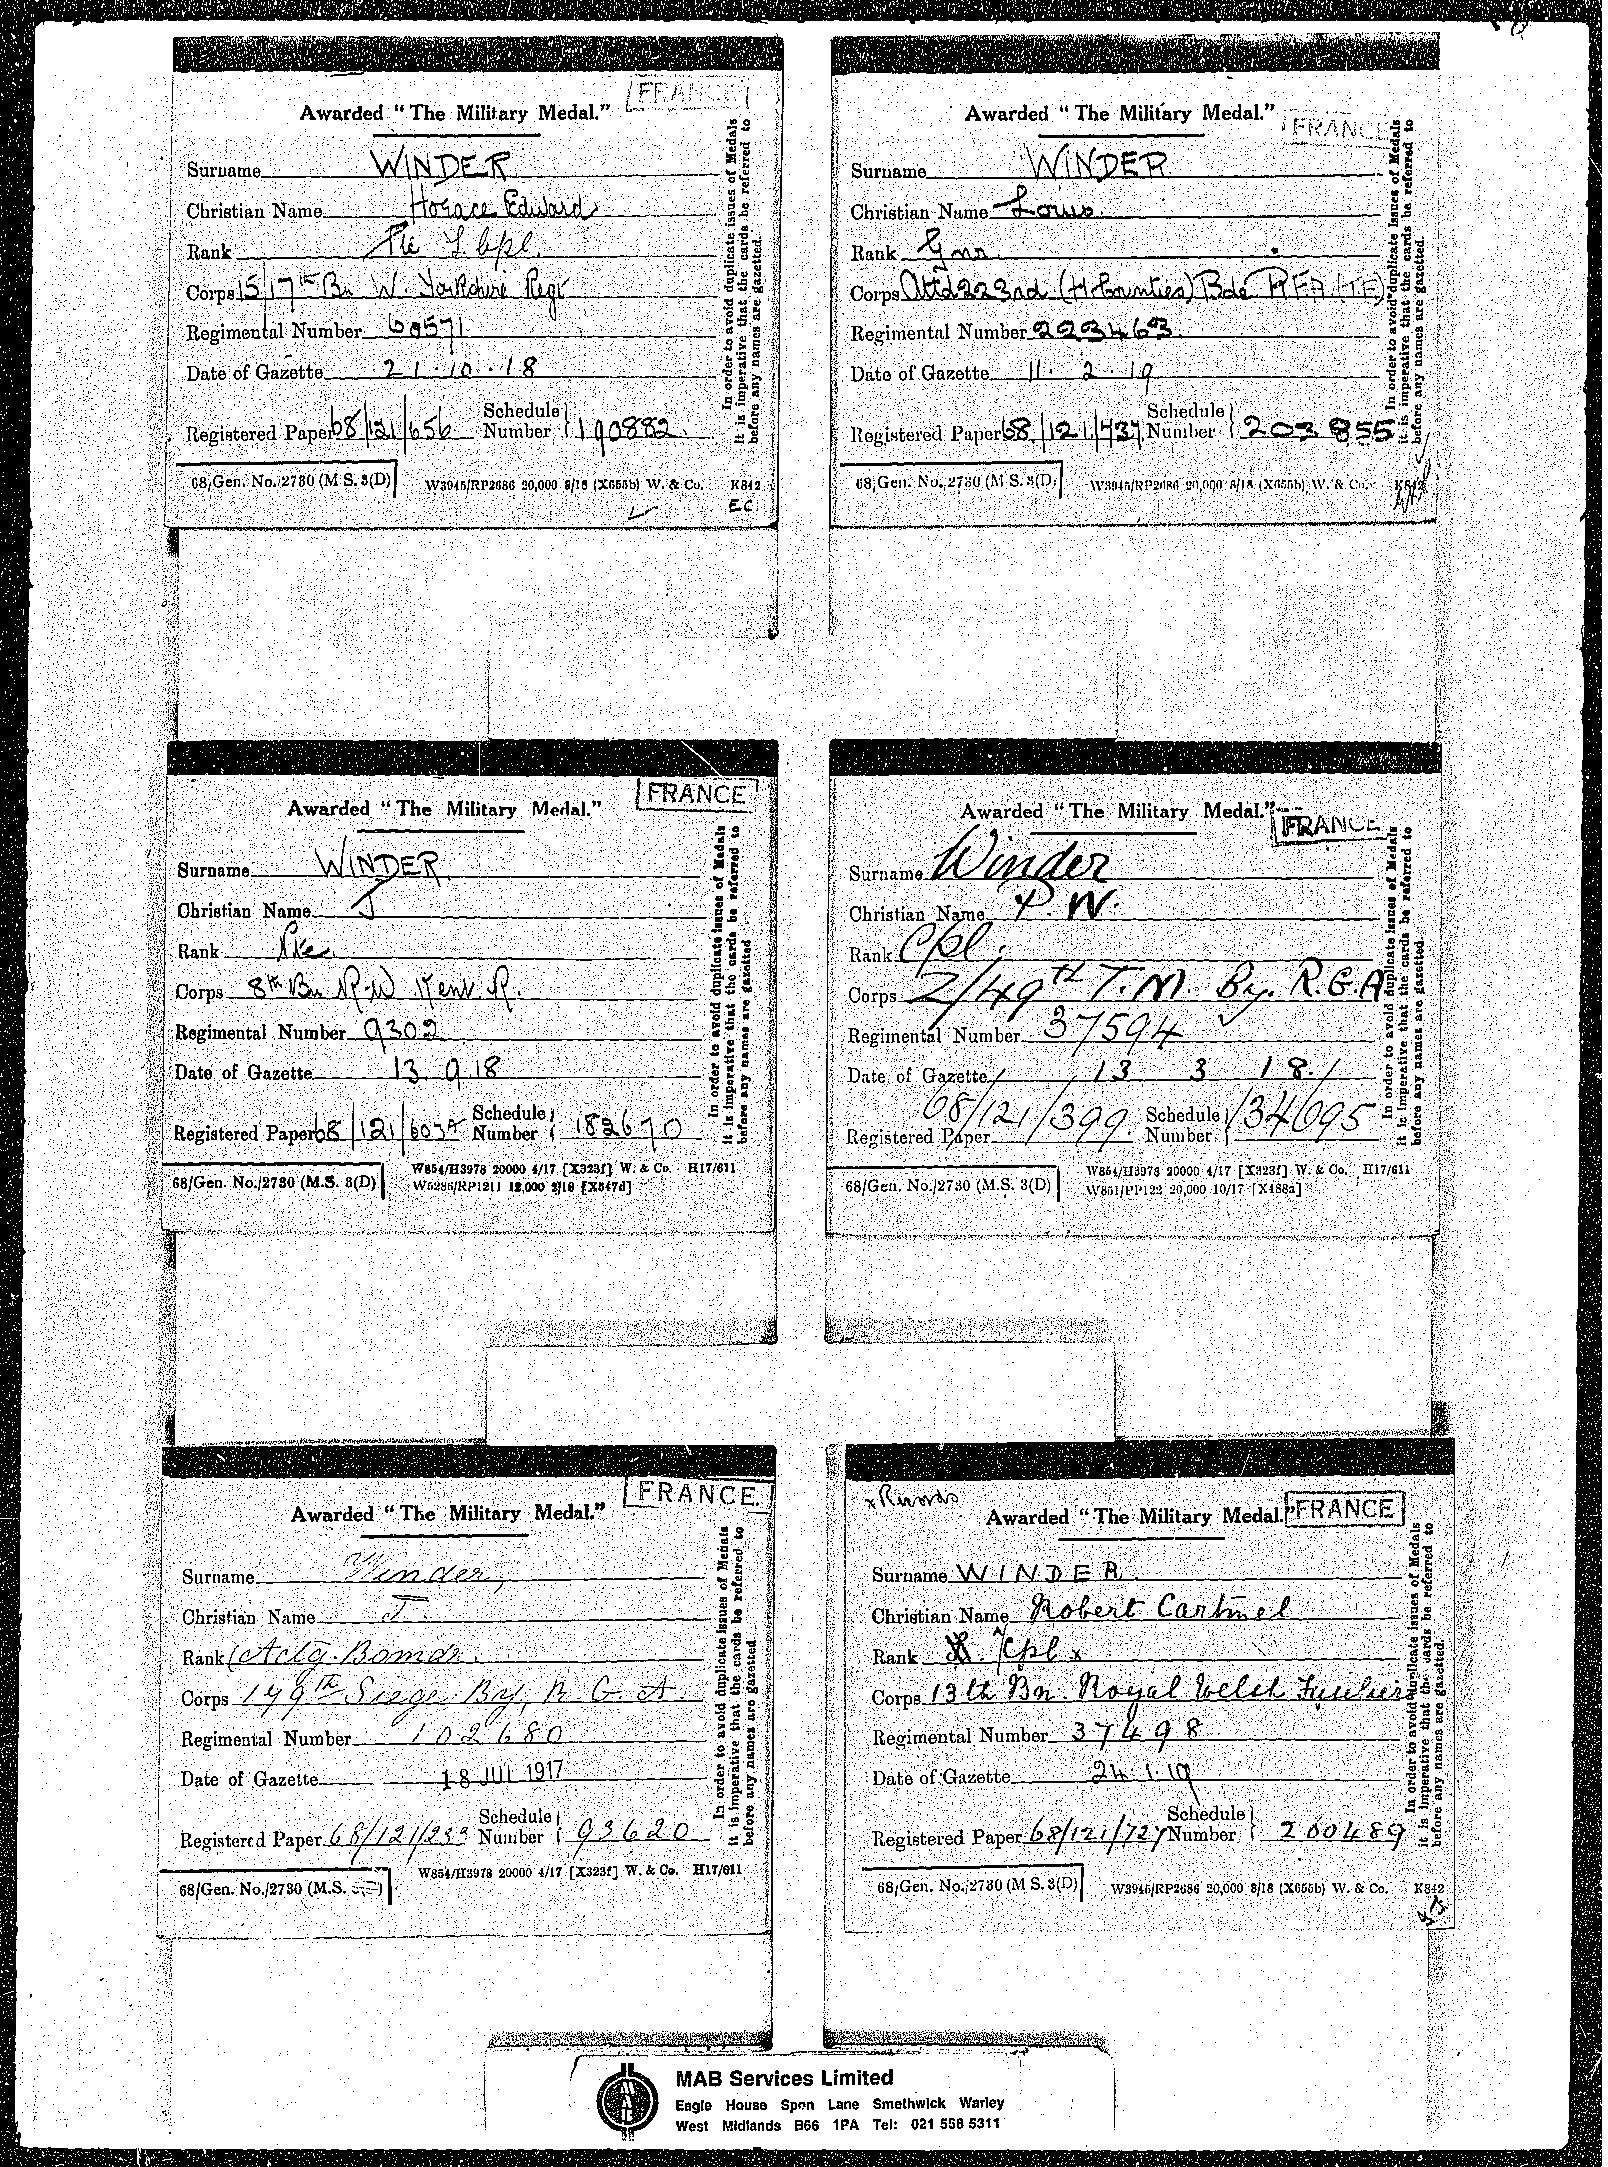 FRANCE
Awarded "The Military Medal."
Surname WINDER
Christian Name Horace Edward
Rank Pte L. Cpl.
Corps 15/17th Bn W. Yorkshire Regt
Regimental Number 60571
Date of Gazette 21.10.18
Registered Paper 68/121/656 Schedule Number 190882
68/Gen. No./2730 (M.S. 3(D) W3945/RP2686 20,000 8/18 (X655b) W. & Co. K842
EC
In order to avoid duplicate issues of Medals
it is imperative that the cards be referred to
before any names are gazetted.
FRANCE
Awarded "The Military Medal."
Surname WINDER
Christian Name Louis
Rank Gnr
Corps Attd 223rd (H. Counties) Bde RFA (TF)
Regimental Number 223463
Date of Gazette 11.2.19
Registered Paper 68/121/737 Schedule Number 203855
68/Gen. No./2730 (M.S. 3(D) W3945/RP2686 20,000 8/18 (X655b) W. & Co. K842
In order to avoid duplicate issues of Medals
it is imperative that the cards be referred to
before any names are gazetted.
FRANCE
Awarded "The Military Medal."
Surname WINDER
Christian Name J
Rank Pte
Corps 8th Bn R.W Kent R.
Regimental Number 9302
Date of Gazette 13.9.18
Registered Paper 68/121/603A Schedule Number 182670
68/Gen. No./2730 (M.S. 3(D) W854/H3978 20000 4/17 [X323f] W. & Co. H17/611
W5285/RP1211 12,000 2/18 [X547d]
In order to avoid duplicate issues of Medals
it is imperative that the cards be referred to
before any names are gazetted.
FRANCE
Awarded "The Military Medal."
Surname Winder
Christian Name P. W.
Rank Cpl.
Corps Z/49th T.M. By. R.G.A
Regimental Number 37594
Date of Gazette 13 3 18.
Registered Paper 68/121/399 Schedule Number 134695
68/Gen. No./2730 (M.S. 3(D) W854/H3978 20000 4/17 [X323f] W. & Co. H17/611
W851/PP122 20,000 10/17 [X488a]
In order to avoid duplicate issues of Medals
it is imperative that the cards be referred to
before any names are gazetted.
FRANCE.
Awarded "The Military Medal."
Surname Winder,
Christian Name J.
Rank Actg. Bomdr.
Corps 149th Siege By, R. G. A.
Regimental Number 102680
Date of Gazette 18 JUL 1917
Registered Paper 68/121/233 Schedule Number 93620
68/Gen. No./2730 (M.S. W854/H3978 20000 4/17 [X323f] W. & Co. H17/611
In order to avoid duplicate issues of Medals
it is imperative that the cards be referred to
before any names are gazetted.
x Records
FRANCE
Awarded "The Military Medal."
Surname WINDER
Christian Name Robert Cartmel
Rank Cpl x
Corps 13th Bn Royal Welsh Fusiliers
Regimental Number 37498
Date of Gazette 24.1.19
Registered Paper 68/121/727 Schedule Number 200489
68/Gen. No./2730 (M.S. 3(D) W3945/RP2686 20,000 8/18 (X655b) W. & Co. K842
In order to avoid duplicate issues of Medals
it is imperative that the cards be referred to
before any names are gazetted.
MAB Services Limited
Eagle House Spon Lane Smethwick Warley
West Midlands B66 1PA Tel: 021 558 5311